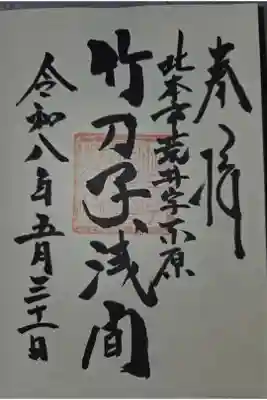 奉拝
北本市荒井字北原
竹刀子浅間
令和八年五月三十一日